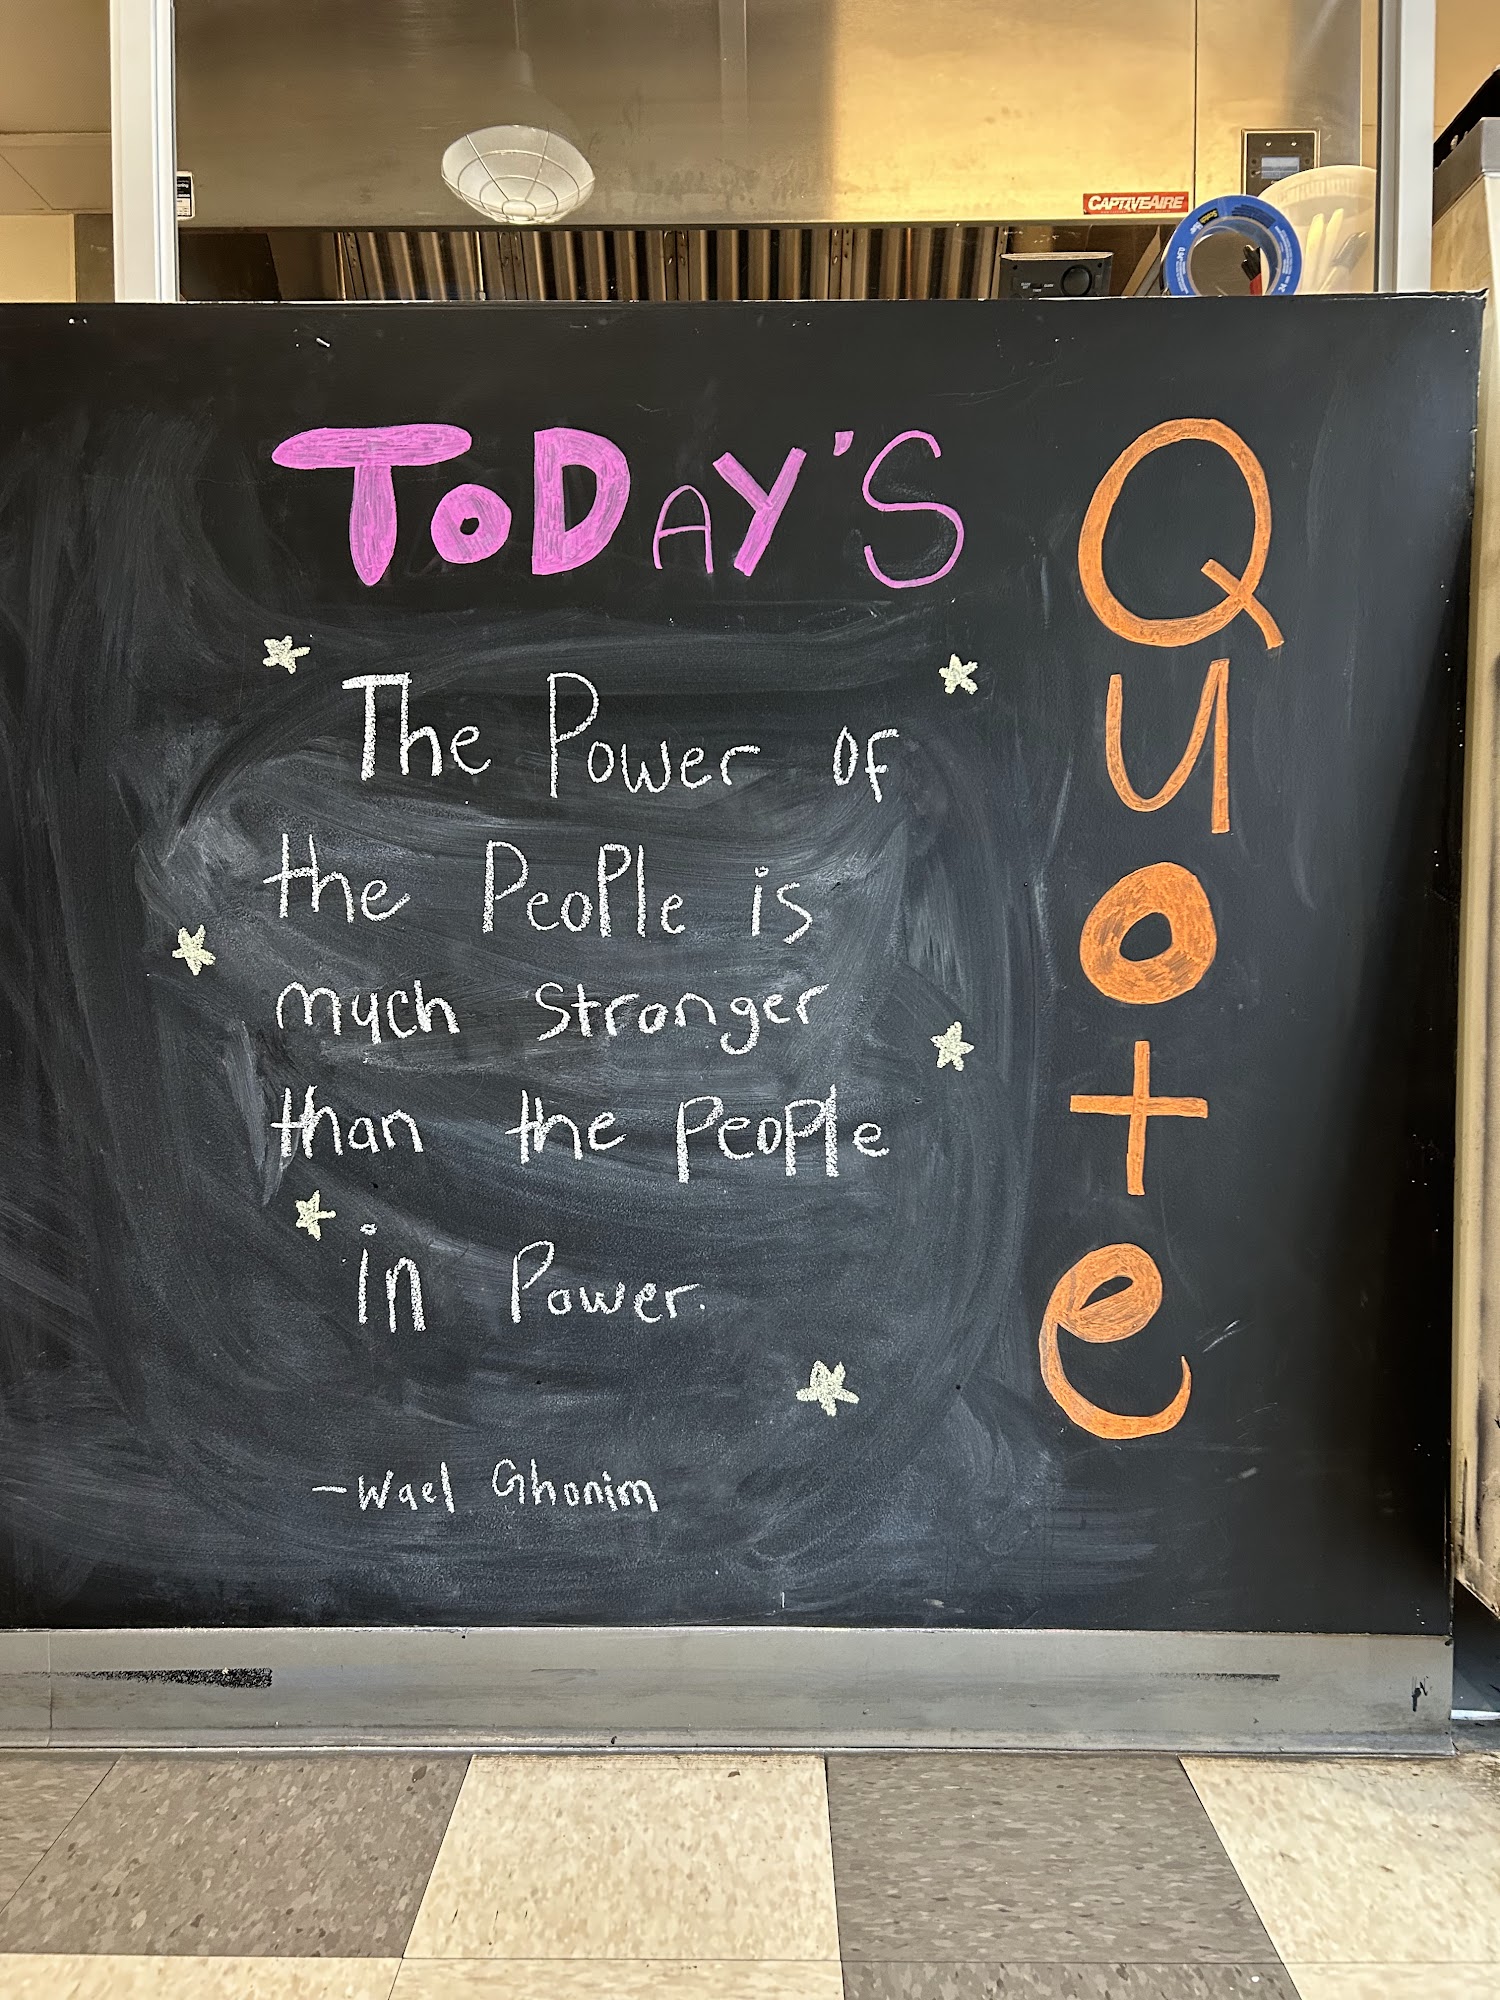 CAPTIVEAIRE
Scotch
TODAY'S
Quote
The Power of
the People is
much stronger
than the people
in Power.
-Wael Ghonim